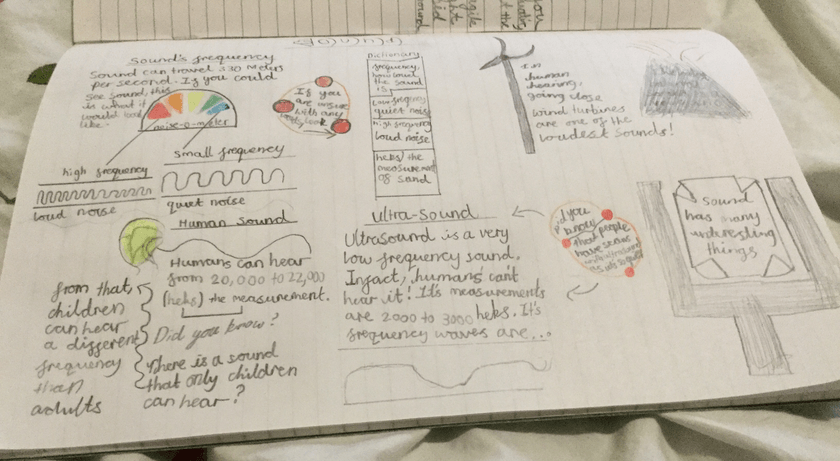 Sound's frequency
Sound can travel 330 Meters
per second. If you could
see sound, this
is what it
would look
like.
noise-o-meter
high frequency
loud noise
Small frequency
quiet noise
If you
are unsure
with any
look
Human Sound
Humans can hear
from 20,000 to 22,000
(heks) the measurement.
Did you know?
There is a sound
that only children
can hear?
from that,
children
can hear
a different
frequency
than
adults
Dictionary
frequency,
how loud
the sound
is
low freqency
quiet noise
high frequency
loud noise
heks) the
measurement
of sand
Ultra-Sound
UltraSound is a very
low frequency sound.
Infact, humans can't
hear it! It's measurements
are 2000 to 3000 heks. It's
frequency waves are...
In
human
hearing,
going close
wind turbines
are one of the
loudest sounds!
did you
know
that people
have
Sound
has many
interesting
things
you
the